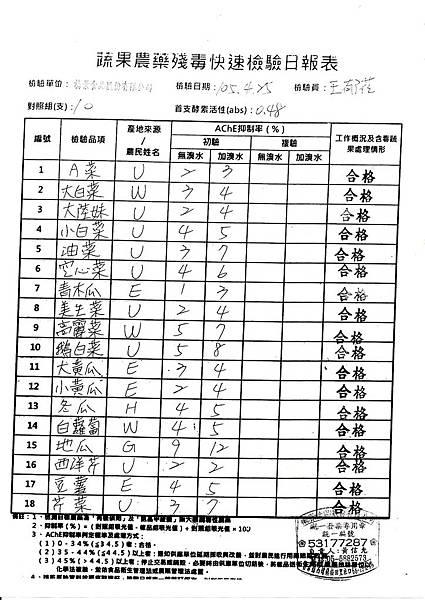 蔬果農藥殘毒快速檢驗日報表
檢驗單位： 檢驗日期：105.4.25 檢驗員：
對照組(支)：10 首支酵素活性(abs)：0.48
編號 檢驗項目 產地來源/農民姓名 AChE抑制率(%) 工作概況及含毒蔬果處理情形
初驗 複驗
無溴水 加溴水 無溴水 加溴水
1 A菜 U 2 3 合格
2 大白菜 W 3 4 合格
3 大陸妹 U 2 4 合格
4 小白菜 U 4 5 合格
5 油菜 U 3 7 合格
6 空心菜 U 4 6 合格
7 青木瓜 E 1 3 合格
8 美生菜 U 2 4 合格
9 高麗菜 W 5 7 合格
10 鵝白菜 U 5 8 合格
11 大黃瓜 E 3 4 合格
12 小黃瓜 E 2 4 合格
13 冬瓜 H 4 5 合格
14 白蘿蔔 W 4 5 合格
15 地瓜 G 9 12 合格
16 西洋芹 U 2 2 合格
17 豆薯 E 4 5 合格
18 芹菜 U 3 7 合格
2、抑制率(%)=(對照組吸光值－樣品組吸光值)÷對照組吸光值×100
3、AChE抑制率判定標準及處理方式：
(1) 0-34%(≦34.5)者：合格。
統一發票專用章
統一編號
53177287
負責人：黃信允